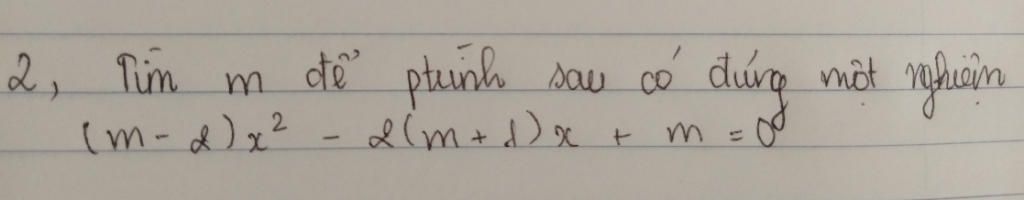 2, Tìm m để ptrình sau có đúng một nghiệm
(m - 2)x² - 2(m + 1)x + m = 0